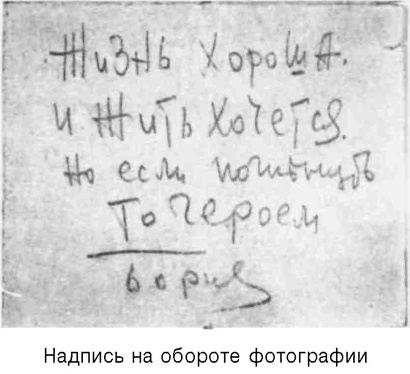 Жизнь хороша.
и жить хочется.
Но если погибнуть
То Героем
Борис
Надпись на обороте фотографии